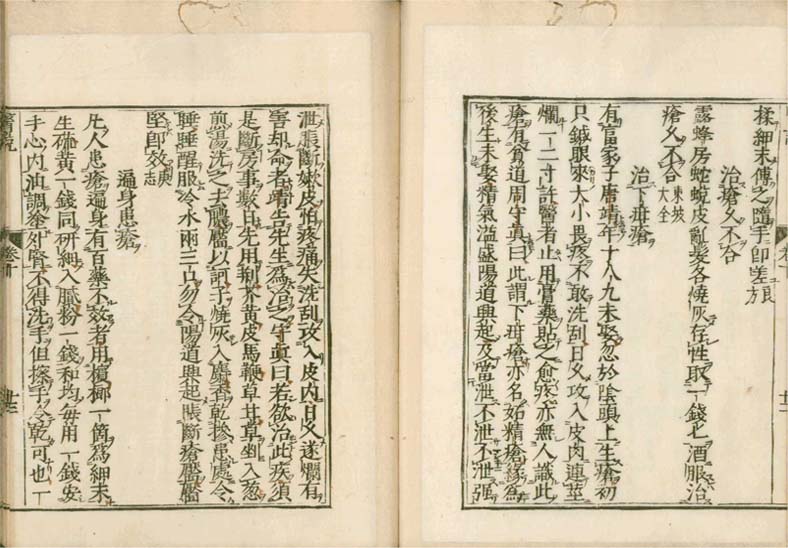 揉細末傅之隨手即差良方
治瘡久不合
露蜂房蛇蛻皮亂髮各燒灰存性取一錢匕酒服治
瘡久不合東坡大全
治下疳瘡
有富家子唐靖年十八九未娶忽於陰頭上生瘡初
只鍼眼來大小畏疼不敢洗刮日久攻入皮肉連莖
爛一二寸許醫者止用膏藥貼之愈疼亦無人識此
瘡有貧道周守真曰此謂下疳瘡亦名妬精瘡緣爲
後生未娶精氣溢盛陽道興起及當泄不泄不泄强
泄脹斷嫩皮怕疼痛失洗刮攻入皮内日久遂爛有
害却命者靖告先生爲治之守真曰若欲治此疾須
是斷房事數日先用荆芥黄皮馬鞭草甘草剉入葱
煎湯洗之去膿靨以訶子燒灰入麝香乾摻患處令
睡睡醒服冷水兩三口勿令陽道興起脹斷瘡靨靨
堅即效庚志
遍身患瘡
凡人患瘡遍身有百藥不效者用檳榔一箇爲細末
生硫黄一錢同研細入膩粉一錢和均每用一錢安
手心内油調塗外腎不得洗手但擦手令乾可也一
醫說
卷十
卷十